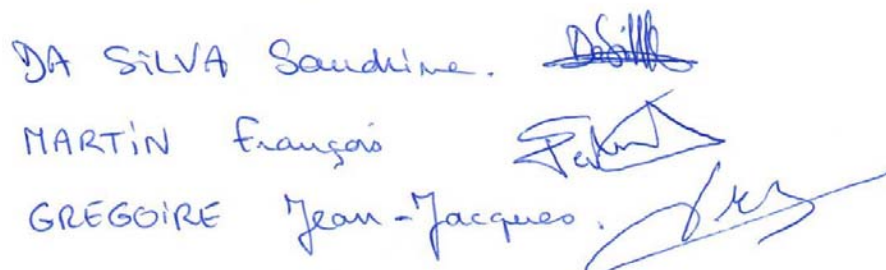 DA SiLVA Sandrine.
MARTiN François
GREGOiRE Jean-Jacques.